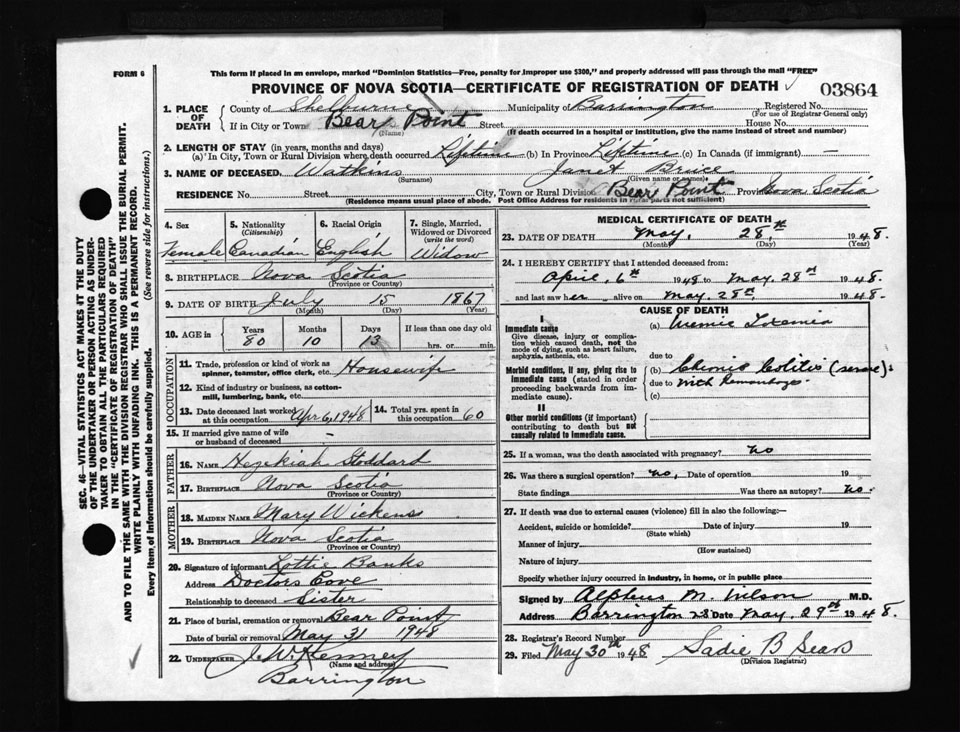 FORM 6
This form if placed in an envelope, marked "Dominion Statistics—Free, penalty for improper use $300," and properly addressed will pass through the mail "FREE"
PROVINCE OF NOVA SCOTIA—CERTIFICATE OF REGISTRATION OF DEATH
03864
1. PLACE OF DEATH
County of Shelburne Municipality of Barrington Registered No.
(For use of Registrar General only)
If in City or Town Bear Point Street House No.
(Name) (If death occurred in a hospital or institution, give the name instead of street and number)
2. LENGTH OF STAY (in years, months and days)
(a) In City, Town or Rural Division where death occurred Lifetime (b) In Province Lifetime (c) In Canada (if immigrant) —
3. NAME OF DECEASED Watkins Janet Bruce
(Surname) (Given name or names)
RESIDENCE No. Street City, Town or Rural Division Bear Point Province Nova Scotia
(Residence means usual place of abode. Post Office Address for residents in rural parts not sufficient)
4. Sex
Female
5. Nationality
(Citizenship)
Canadian
6. Racial Origin
English
7. Single, Married, Widowed or Divorced
(write the word)
Widow
8. BIRTHPLACE Nova Scotia
(Province or Country)
9. DATE OF BIRTH July 15 1867
(Month) (Day) (Year)
10. AGE in
Years Months Days If less than one day old
80 10 13 hrs. or min.
OCCUPATION
11. Trade, profession or kind of work as spinner, teamster, office clerk, etc. Housewife
12. Kind of industry or business, as cotton-mill, lumbering, bank, etc.
13. Date deceased last worked at this occupation Apr 6, 1948
14. Total yrs. spent in this occupation 60
15. If married give name of wife or husband of deceased –
FATHER
16. NAME Hezekiah Stoddard
17. BIRTHPLACE Nova Scotia
(Province or Country)
MOTHER
18. MAIDEN NAME Mary Wickens
19. BIRTHPLACE Nova Scotia
(Province or Country)
20. Signature of informant Lottie Banks
Address Doctors Cove
Relationship to deceased Sister
21. Place of burial, cremation or removal Bear Point
Date of burial or removal May 31 1948
22. UNDERTAKER J. W. Kenney
(Name and address)
Barrington
MEDICAL CERTIFICATE OF DEATH
23. DATE OF DEATH May, 28th 1948.
(Month) (Day) (Year)
24. I HEREBY CERTIFY that I attended deceased from:
April, 6th 1948 to May, 28th 1948.
and last saw her alive on May. 28th 1948.
CAUSE OF DEATH
I
Immediate cause
Give disease, injury or complication which caused death, not the mode of dying, such as heart failure, asphyxia, asthenia, etc.
(a) Uremic Toxemia
due to
Morbid conditions, if any, giving rise to immediate cause (stated in order proceeding backwards from immediate cause).
(b) Chronic Colitis (severe)
due to with
(c)
II
Other morbid conditions (if important) contributing to death but not causally related to immediate cause.
25. If a woman, was the death associated with pregnancy? no
26. Was there a surgical operation? no, Date of operation 19
State findings Was there autopsy? no.
27. If death was due to external causes (violence) fill in also the following:—
Accident, suicide or homicide? Date of injury 19
(State which)
Manner of injury
(How sustained)
Nature of injury
Specify whether injury occurred in industry, in home, or in public place
Signed by Alpheus M. Wilson M.D.
Address Barrington Date May, 29th 1948.
28. Registrar's Record Number
29. Filed May 30th 1948 Sadie B Sears
(Division Registrar)
SEC. 46—VITAL STATISTICS ACT MAKES IT THE DUTY
OF THE UNDERTAKER OR PERSON ACTING AS UNDER-
TAKER TO OBTAIN ALL THE PARTICULARS REQUIRED
IN THE "CERTIFICATE OF REGISTRATION OF DEATH"
AND TO FILE THE SAME WITH THE DIVISION REGISTRAR WHO SHALL ISSUE THE BURIAL PERMIT.
WRITE PLAINLY WITH UNFADING INK. THIS IS A PERMANENT RECORD.
Every item of information should be carefully supplied. (See reverse side for instructions.)